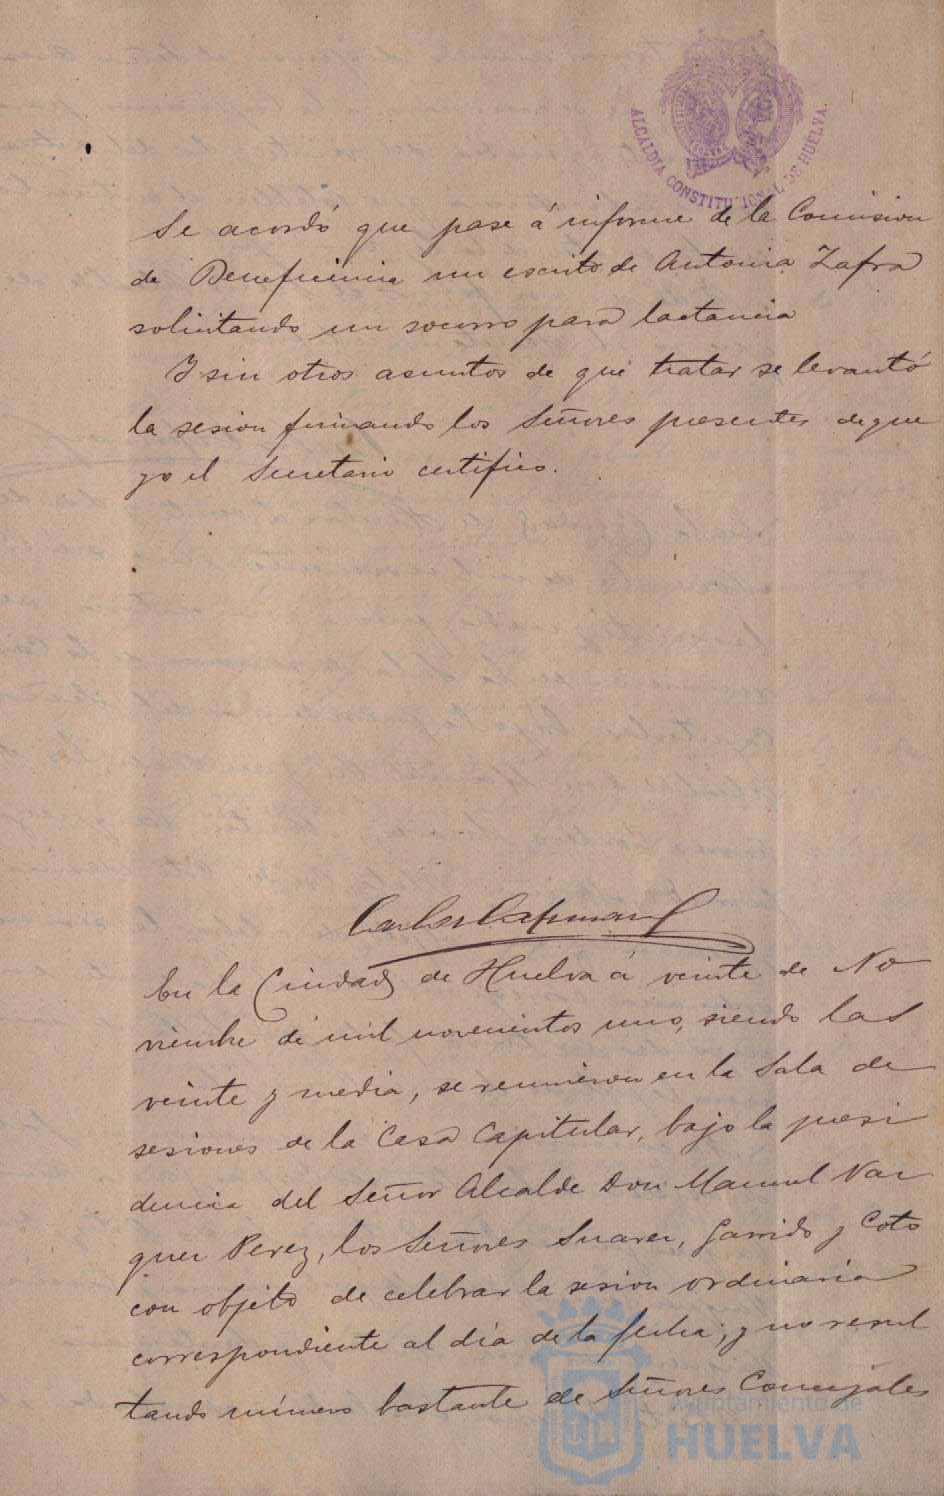 ALCALDIA CONSTITUCIONAL DE HUELVA.
Se acordó que pase á informe de la Comision
de Beneficencia un escrito de Antonia Zafra
solicitando un socorro para lactancia
Y sin otros asuntos de que tratar se levantó
la sesion firmando los Señores presentes de que
yo el Secretario certifico.
En la Ciudad de Huelva á veinte de No
viembre de mil novecientos uno, siendo las
veinte y media, se reunieron en la Sala de
sesiones de la Casa Capitular, bajo la presi
dencia del Señor Alcalde Don Manuel Vaz
quez Perez, los Señores Suarez, Garrido y Coto
con objeto de celebrar la sesion ordinaria
correspondiente al dia de la fecha; y no resul
tando número bastante de Señores Concejales
Ayuntamiento de
HUELVA